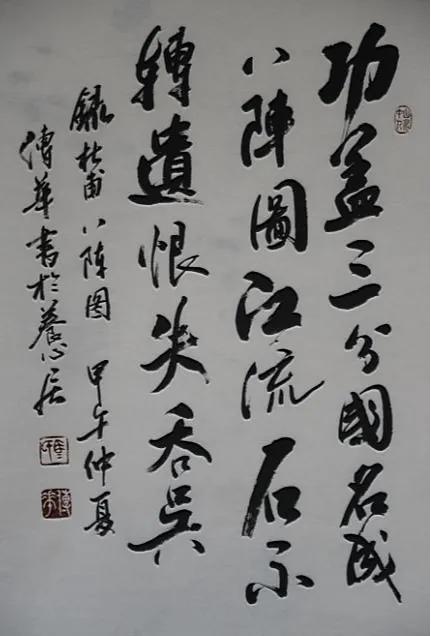 功盖三分國名成
八陣圖江流石不
轉遺恨失吞吳
錄杜甫八陣图 甲午仲夏
傅華書於養心居